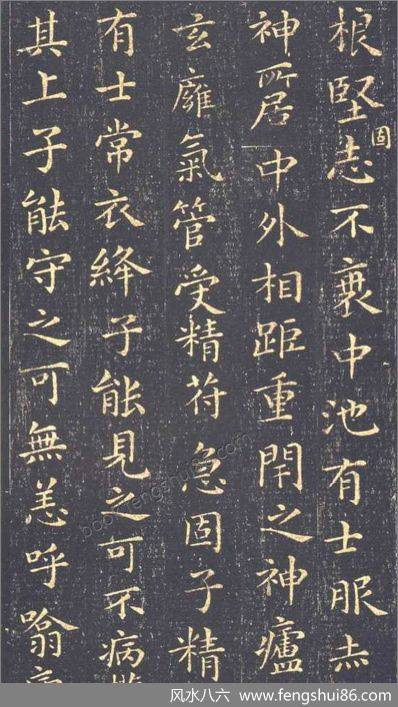 根堅志不衰中池有士服赤
固
神所居中外相距重閇之神廬
玄廱氣管受精苻急固子精
有士常衣絳子能見之可不病
其上子能守之可無恙呼噏
风水八六 www.fengshui86.com